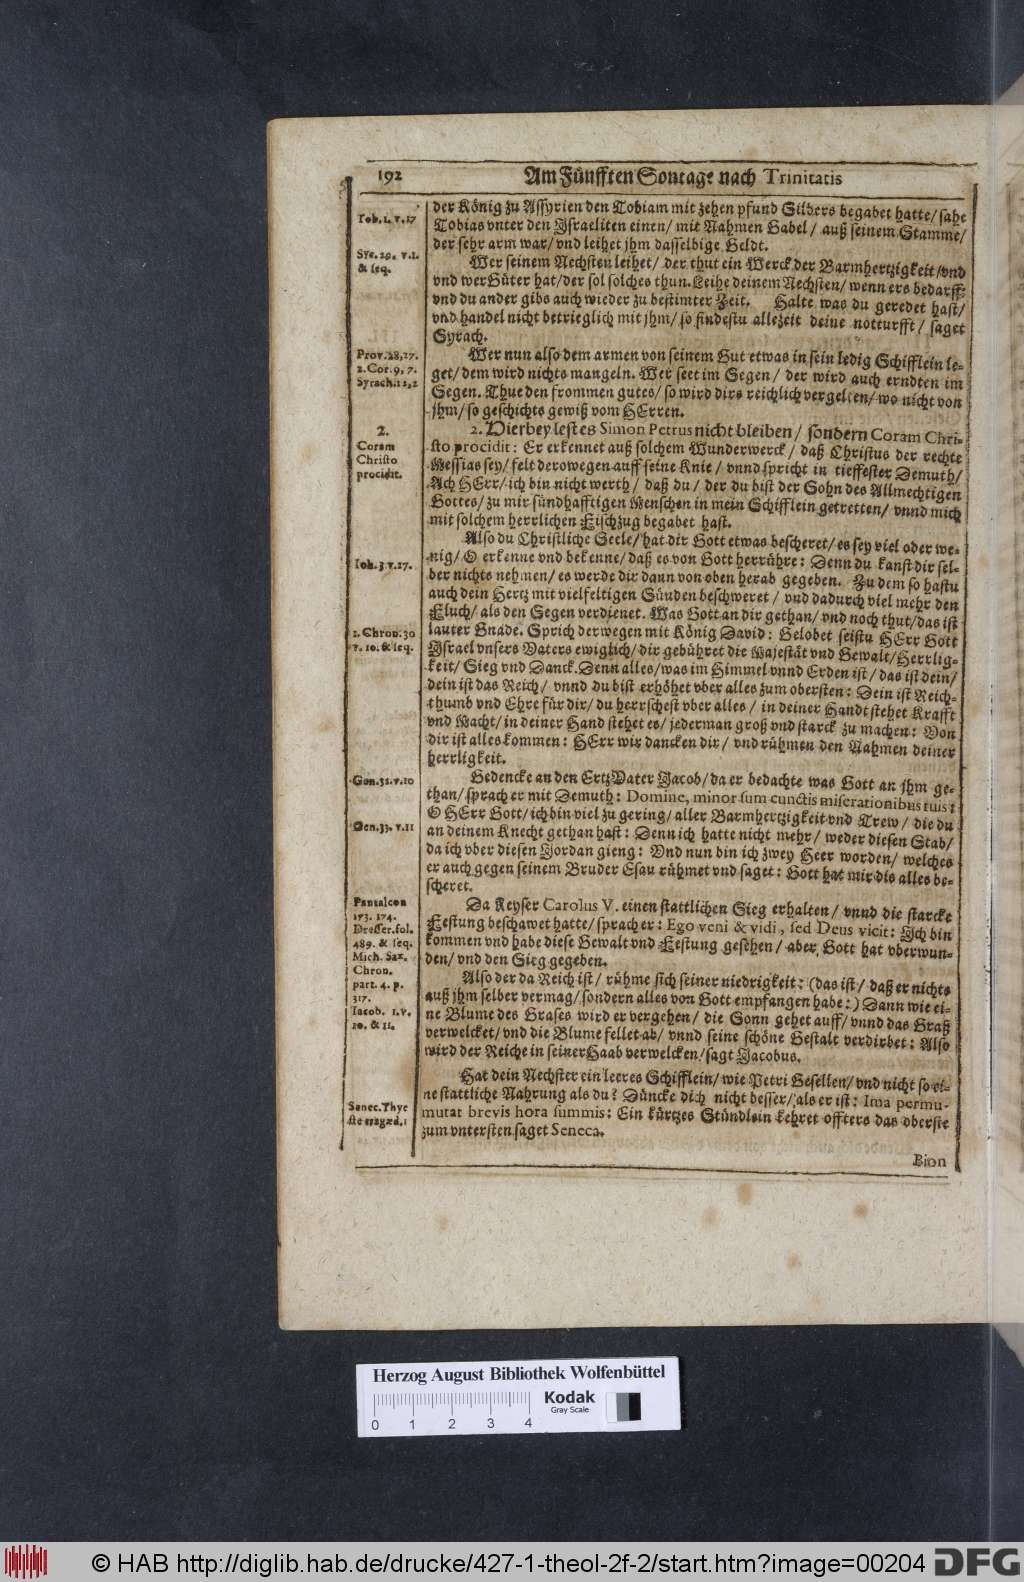 192
Am Fünfften Sontage nach Trinitatis
Tob. 1. v. 17
der König zu Assyrien den Tobiam mit zehen pfund Silbers begabet hatte/ sahe
Tobias vnter den Israeliten einen/ mit Nahmen Gabel/ auß seinem Stamme/
der sehr arm war/ vnd leihet jhm dasselbige Geldt.
Syr. 29. v. 1.
& seq.
Wer seinem Nechsten leihet/ der thut ein Werck der Barmhertzigkeit/ vnd
vnd wer Güter hat/ der sol solches thun. Leihe deinem Nechsten/ wenn ers bedarff/
vnd du ander gibs auch wieder zu bestimter Zeit. Halte was du geredet hast/
vnd handel nicht betrieglich mit jhm/ so findestu allezeit deine notturfft/ saget
Syrach.
Prov. 28, 27.
2. Cor. 9, 7.
Syrach. 12, 2
Wer nun also dem armen von seinem Gut etwas in sein ledig Schifflein le-
get/ dem wird nichts mangeln. Wer seet im Segen/ der wird auch erndten im
Segen. Thue den frommen gutes/ so wird dirs reichlich vergelten/ wo nicht von
jhm/ so geschichts gewiß vom HErren.
2.
Coram
Christo
procidit.
2. Hierbey lest es Simon Petrus nicht bleiben/ sondern Coram Chri-
sto procidit: Er erkennet auß solchem Wunderwerck/ daß Christus der rechte
Messias sey/ felt derowegen auff seine Knie/ vnnd spricht in tieffester Demuth/
Ach HErr/ ich bin nicht werth/ daß du/ der du bist der Sohn des Allmechtigen
Gottes/ zu mir sündhafftigen Menschen in mein Schifflein getretten/ vnnd mich
mit solchem herrlichen Fischzug begabet hast.
Ioh. 3. v. 27.
Also du Christliche Seele/ hat dir Gott etwas bescheret/ es sey viel oder we-
nig/ O erkenne vnd bekenne/ daß es von Gott herrühre: Denn du kanst dir sel-
ber nichts nehmen/ es werde dir dann von oben herab gegeben. Zu dem so hastu
auch dein Hertz mit vielfeltigen Sünden beschweret/ vnd dadurch viel mehr den
Fluch/ als den Segen verdienet. Was Gott an dir gethan/ vnd noch thut/ das ist
1. Chron. 30
v. 10. & seq.
lauter Gnade. Sprich derwegen mit König David: Gelobet seistu HErr Gott
Israel vnsers Vaters ewiglich/ dir gebühret die Majestät vnd Gewalt/ Herrlig-
keit/ Sieg vnd Danck. Denn alles/ was im Himmel vnnd Erden ist/ das ist dein/
dein ist das Reich/ vnnd du bist erhöhet vber alles zum obersten: Dein ist Reich-
thumb vnd Ehre für dir/ du herrschest vber alles/ in deiner Handt stehet Krafft
vnd Macht/ in deiner Hand stehet es/ jederman groß vnd starck zu machen: Von
dir ist alles kommen: HErr wir dancken dir/ vnd rühmen den Nahmen deiner
herrligkeit.
Gen. 32. v. 10
Gedencke an den Ertz Vater Jacob/ da er bedachte was Gott an jhm ge-
than/ sprach er mit Demuth: Domine, minor sum cunctis miserationibus tuis:
O HErr Gott/ ich bin viel zu gering/ aller Barmhertzigkeit vnd Trew/ die du
Gen. 33. v. 11
an deinem Knecht gethan hast: Denn ich hatte nicht mehr/ weder diesen Stab/
da ich vber diesen Jordan gieng: Vnd nun bin ich zwey Heer worden/ welches
er auch gegen seinem Bruder Esau rühmet vnd saget: Gott hat mir dis alles be-
scheret.
Pantaleon
173. 174.
Dresser. fol.
489. & seq.
Mich. Sax.
Chron.
part. 4. p.
317.
Da Keyser Carolus V. einen stattlichen Sieg erhalten/ vnnd die starcke
Festung beschawet hatte/ sprach er: Ego veni & vidi, sed Deus vicit: Ich bin
kommen vnd habe diese Gewalt vnd Festung gesehen/ aber Gott hat vberwun-
den/ vnd den Sieg gegeben.
Iacob. 1. v.
10. & 11.
Also der da Reich ist/ rühme sich seiner niedrigkeit: (das ist/ daß er nichts
auß jhm selber vermag/ sondern alles von Gott empfangen habe:) Dann wie ei-
ne Blume des Grases wird er vergehen/ die Sonn gehet auff/ vnnd das Graß
verwelcket/ vnd die Blume fellet ab/ vnnd seine schöne Gestalt verdirbet: Also
wird der Reiche in seiner Haab verwelcken/ sagt Jacobus.
Hat dein Nechster ein leeres Schifflein/ wie Petri Gesellen/ vnd nicht so ei-
ne stattliche Nahrung als du? Düncke dich nicht besser/ als er ist: Ima permu-
Senec. Thye
ste tragœd. 1
mutat brevis hora summis: Ein kürtzes Stündlein kehret offters das oberste
zum vntersten saget Seneca.
Bion
Herzog August Bibliothek Wolfenbüttel
0 1 2 3 4
Kodak
Gray Scale
© HAB http://diglib.hab.de/drucke/427-1-theol-2f-2/start.htm?image=00204
DFG